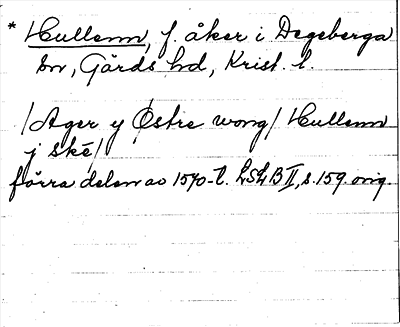 * Hullenn, f. åker i Degeberga
sn, Gärds hd, Krist. l.
/Ager y Østre wong/ Hullenn
j skē/
förra delen av 1570-t. LSLB II, s. 159. orig.